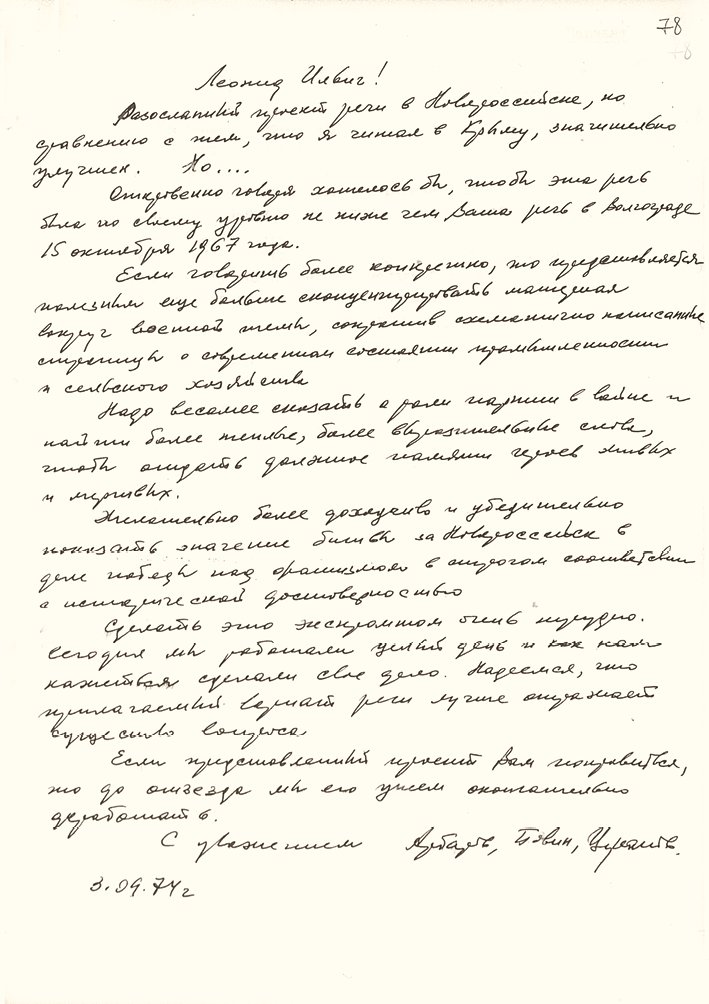 78
Леонид Ильич!
Разосланный проект речи в Новороссийске, по
сравнению с тем, что я читал в Крыму, значительно
улучшен. Но....
Откровенно говоря хотелось бы, чтобы эта речь
была по своему уровню не ниже чем Ваша речь в Волгограде
15 октября 1967 года.
Если говорить более конкретно, то представляется
полезным еще больше сконцентрировать материал
вокруг военной темы, сократив схематично написанные
страницы о современном состоянии промышленности
и сельского хозяйства
Надо весомее сказать о роли партии в войне и
найти более теплые, более выразительные слова,
чтобы отдать должное памяти героев живых
и мертвых.
Желательно более доходчиво и убедительно
показать значение битвы за Новороссийск в
деле победы над фашизмом в строгом соответствии
с исторической достоверностью
Сделать это экспромтом очень трудно.
Сегодня мы работали целый день и как нам
кажется сделали свое дело. Надеемся, что
прилагаемый вариант речи лучше отражает
существо вопроса
Если представленный проект Вам понравится,
то до отъезда мы его успеем окончательно
доработать.
С уважением Арбатов, Бовин, Цуканов.
3.09.74г